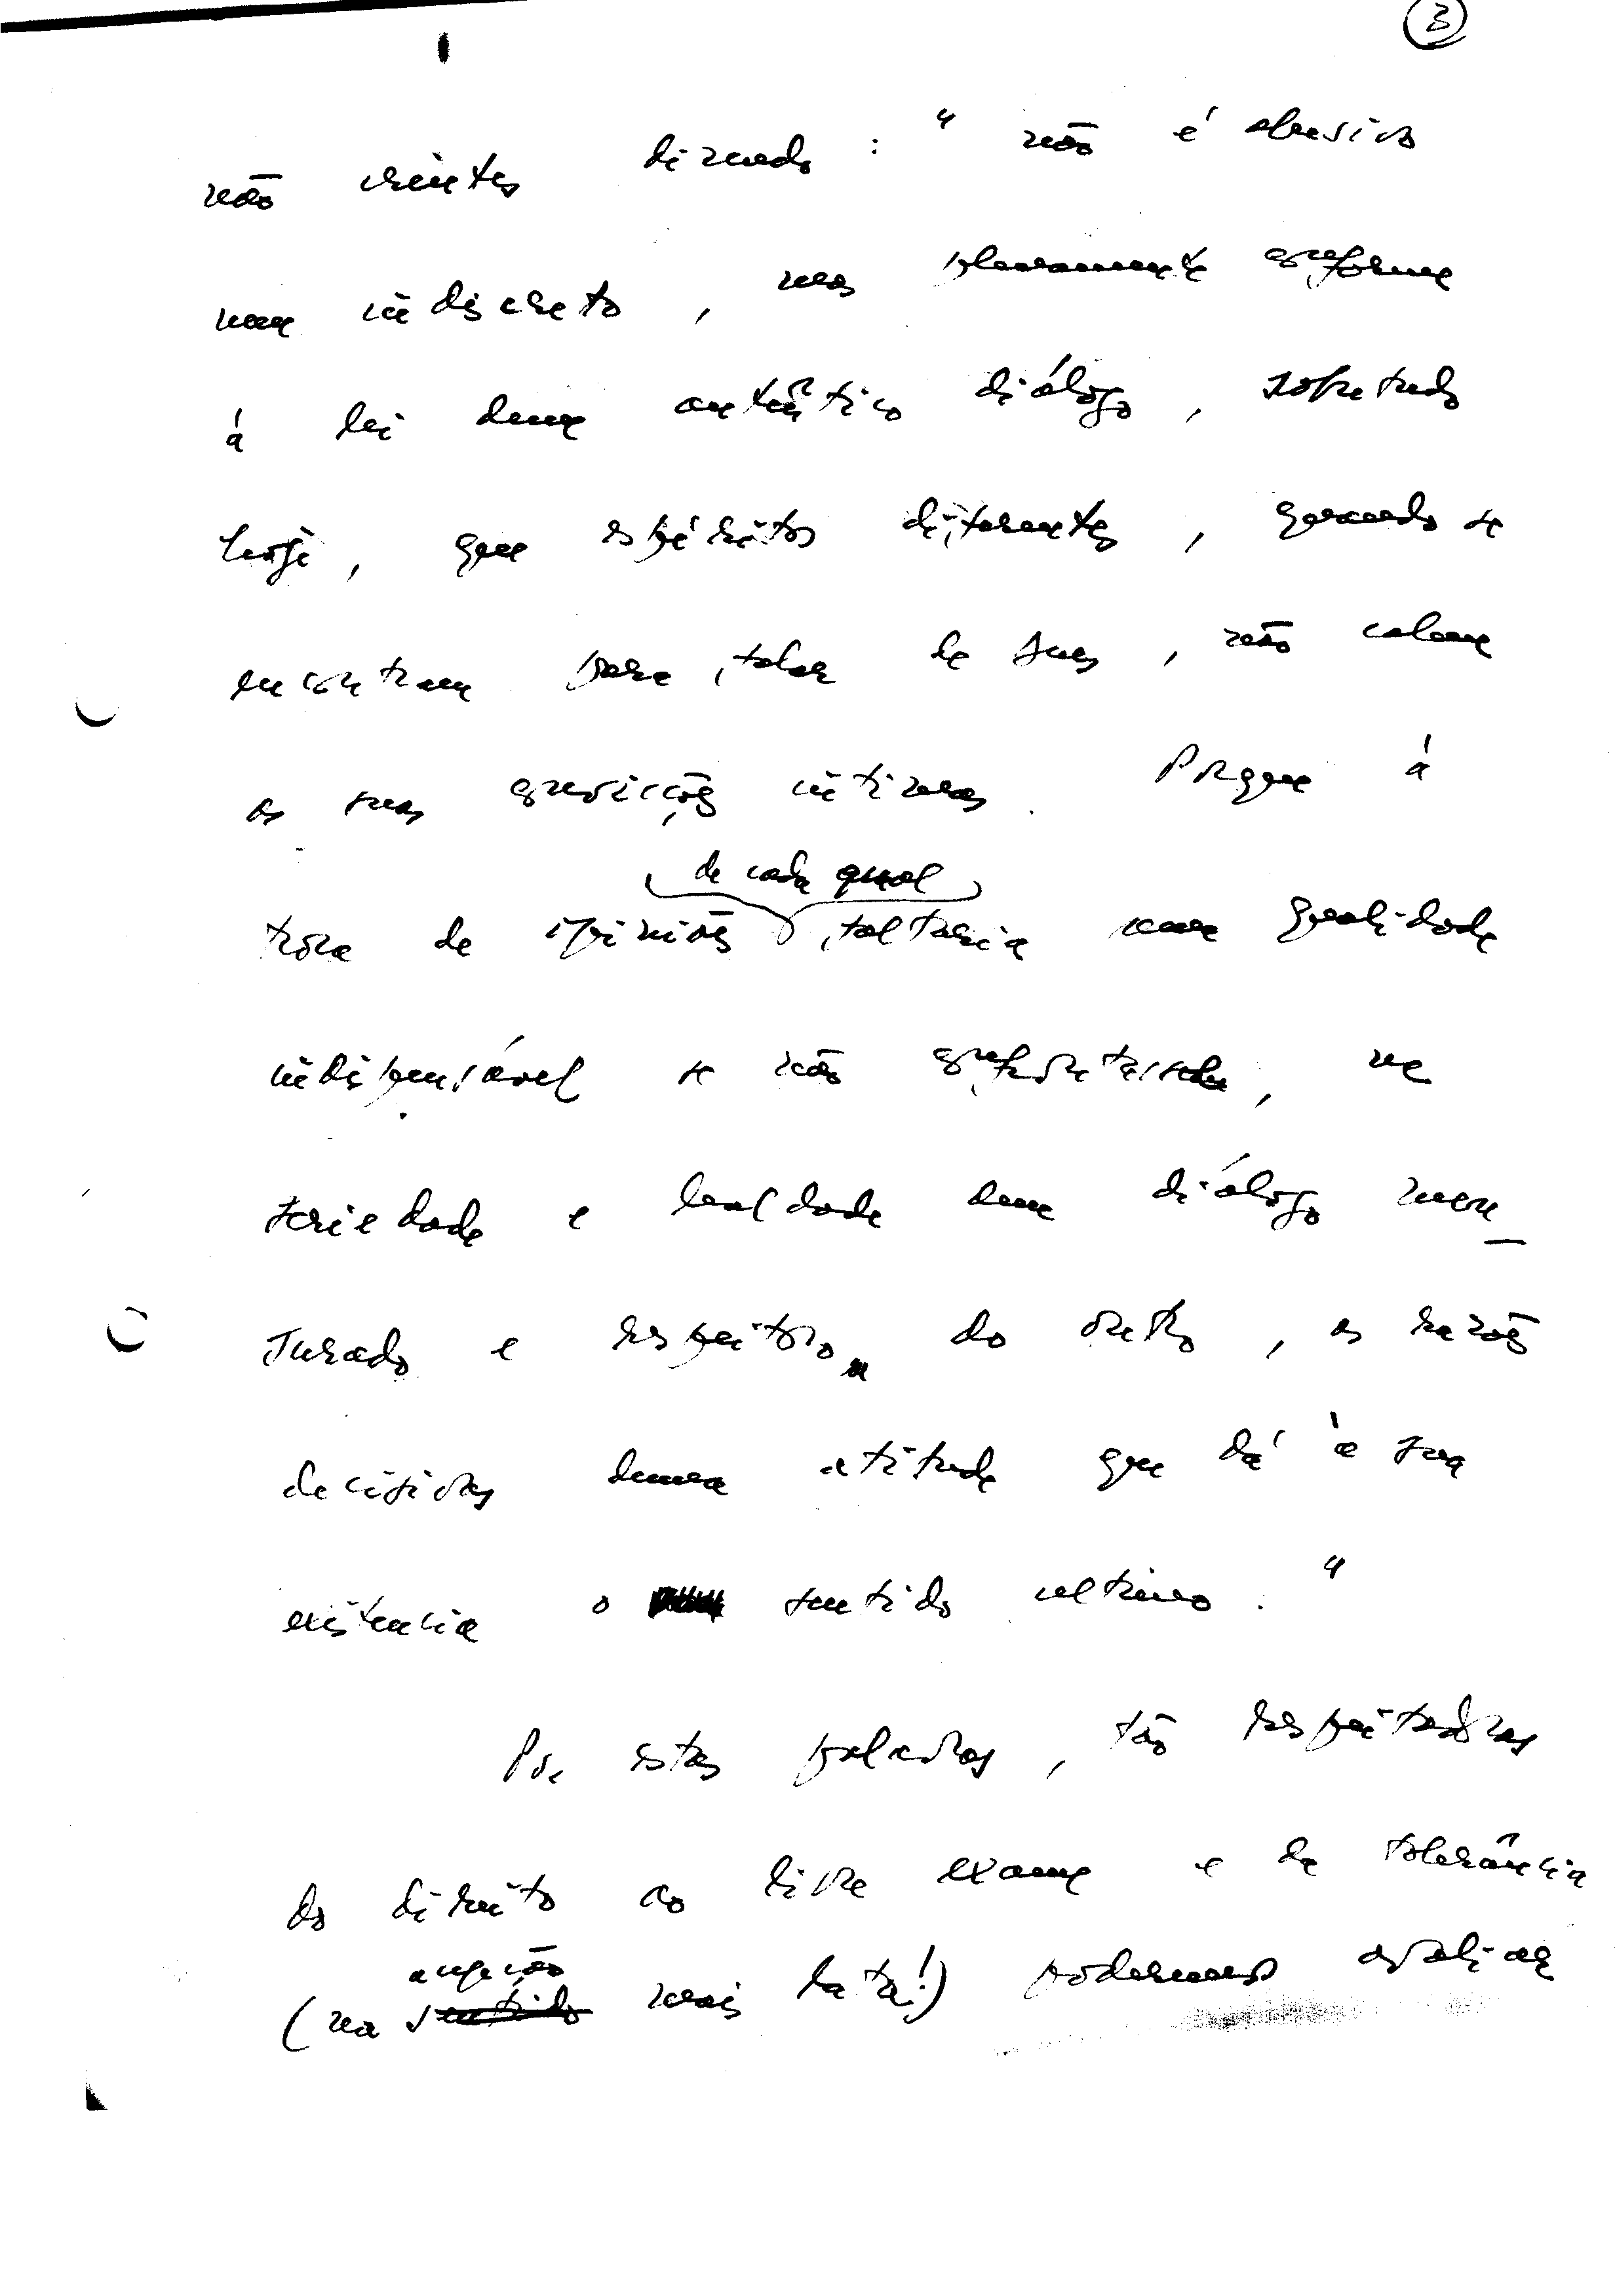 3
não crentes dizendo: " não é abusivo
nem indiscreto, mas plenamente conforme
á lei dum autêntico diálogo, sobretudo
hoje, que espíritos diferentes, quando se
encontram para falar de suas, não calem
as suas convicções intimas. Porque á
de cada qual
troca de opiniões faltaria uma qualidade
indispensável se não confrontasse, na
seriedade e lealdade dum diálogo men_
surado e respeitoso do outro, as razões
decisivas duma atitude que dá à sua
existencia o sentido ultimo. "
Por estas palavras, tão respeitadoras
do direito ao livre exame e da tolerância
acepção
(na sentido mais lata!) podermos avaliar